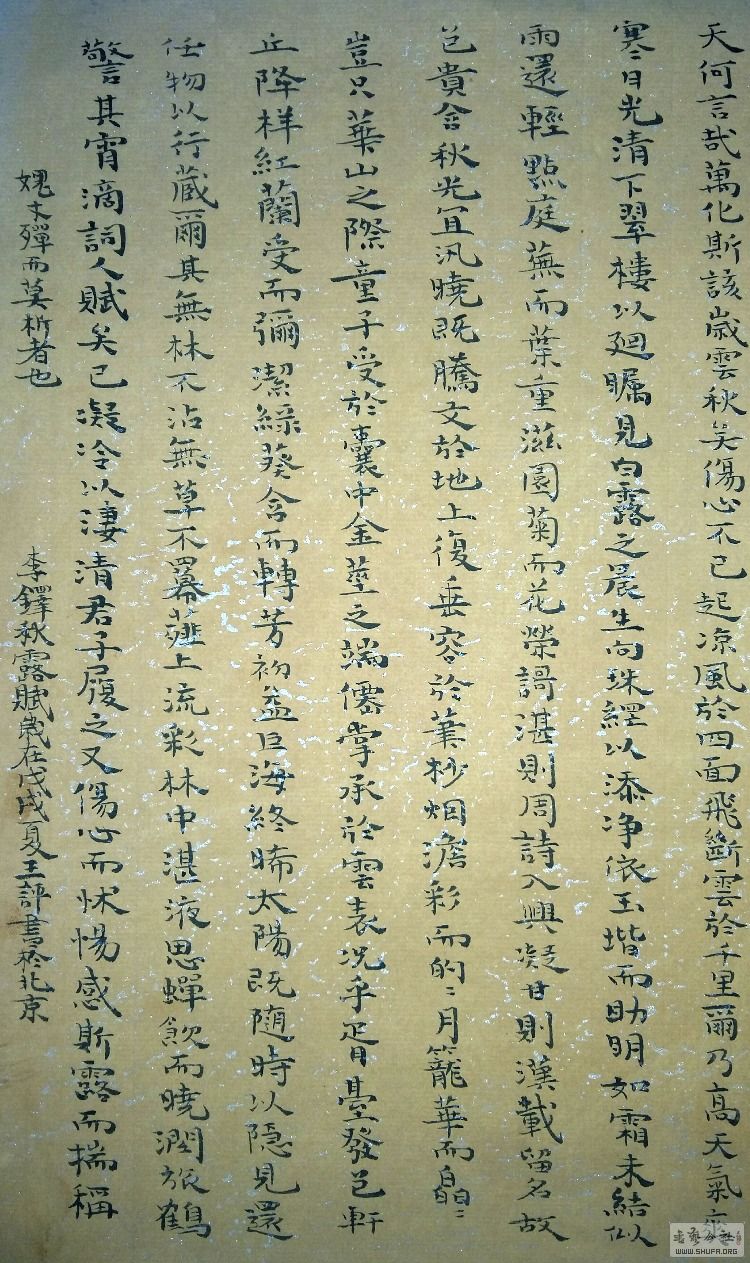 天何言哉萬化斯該歲雲秋矣傷心不已起涼風於四面飛斷雲於千里爾乃高天氣
寒日光清下翠樓以廻矚見白露之晨生向珠綴以添净依玉堦而助明如霜未結似
雨還輕點庭蕪而葉重滋園菊而花榮謌湛則周詩入興凝甘則漢載留名故
色貴含秋光宜汎曉既騰文於地上復垂容於葉杪烟澹彩而的〻月籠華而皛〻
豈只葉山之際童子受於囊中金莖之端僊掌承於雲表况乎胥臺發色軒
丘降样紅蘭受而彌潔綠葵含而轉芳初益巨海終晞太陽既随時以隱見還
任物以行藏爾其無林不沾無草不羃薤上流彩林中湛液思蟬飲而曉潤旅鶴
警其宵滴詞人賦矣已凝冷以淒清君子履之又傷心而怵惕感斯露而揣稱
媿文殫而莫析者也
李鐸秋露賦歲在戊戌夏王評書於北京
WWW.SHUFA.ORG